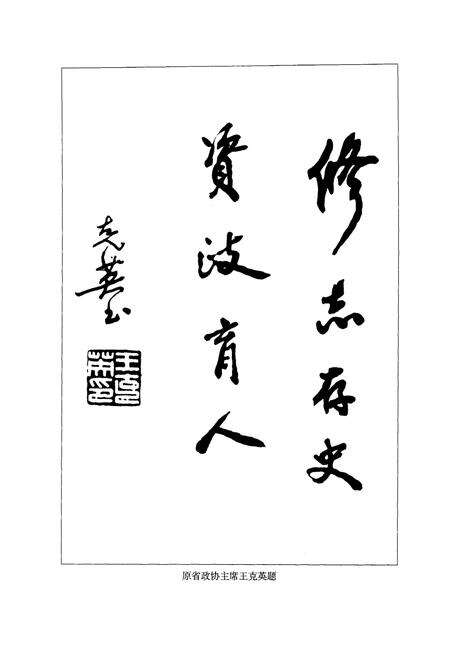 修志存史
資政育人
克英书
王克英印
原省政协主席王克英题